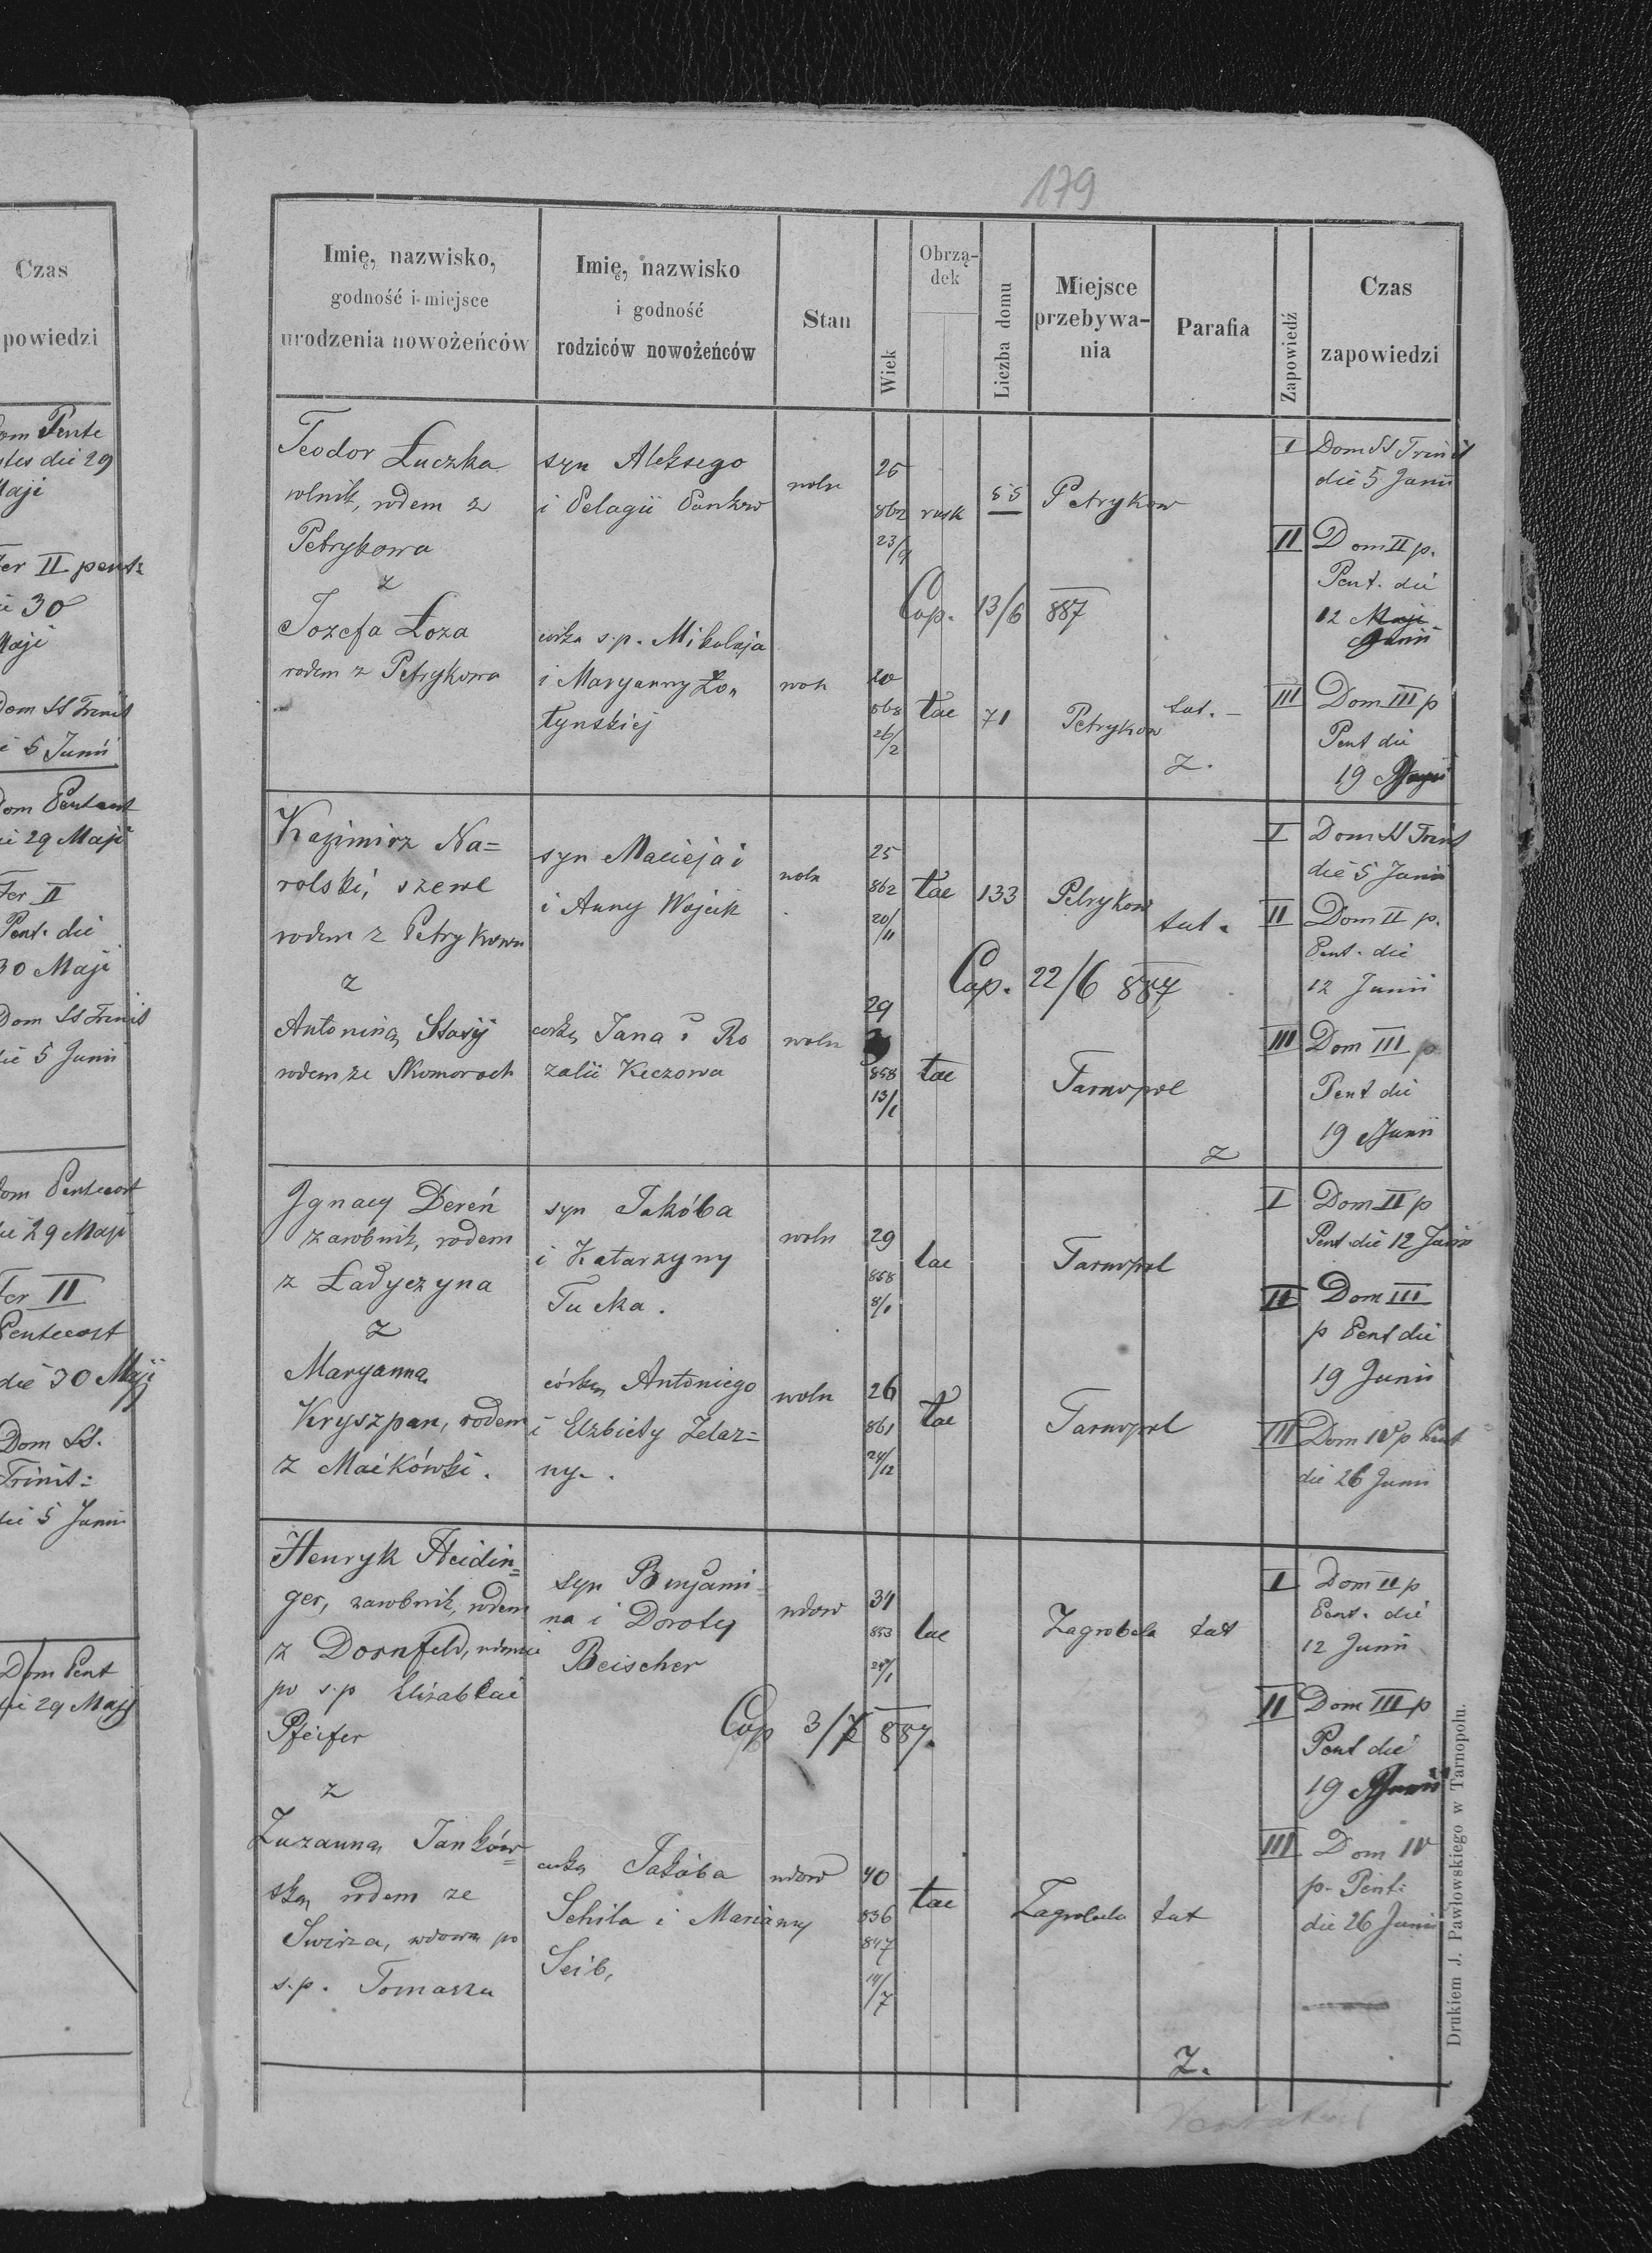 Czas
powiedzi
Pente
die 29
Maji
II pent:
30
Maji
Dom SS Trinit
5 Junii
Dom Pentecost
29 Maji
Fer II
Pent. die
30 Maji
Dom SS Trinit
die 5 Junii
Dom Pentecost
die 29 Maji
Fer II
Pentecost
die 30 Maji
Dom SS.
Trinit:
die 5 Junii
Dom Pent
die 29 Maji
179
Imię, nazwisko,
godność i miejsce
urodzenia nowożeńców
Imię, nazwisko
i godność
rodziców nowożeńców
Stan
Wiek
Obrzą-
dek
Liczba domu
Miejsce
przebywa-
nia
Parafia
Zapowiedź
Czas
zapowiedzi
Teodor Łuczka
rolnik, rodem z
Petrykowa
z
Jozefa Łoza
rodem z Petrykowa
syn Aleksego
i Pelagii Pankow
córka s.p. Mikołaja
i Maryanny Zo„
tynskiej
woln
25
862
23/
rusk
55
Petrykow
Cop. 13/6 887
woln
20
868
26/2
łac
71
Petrykow
tut. –
z.
I Dom SS Trinit
die 5 Junii
II Dom II p.
Pent. die
12 Maji
Junii
III Dom III p
Pent die
19 Junii
Kazimirz Na=
rolski, szewc
rodem z Petrykowa
z
Antonina Stasij
rodem ze Skomoroch
syn Macieja i
i Anny Wojcik
corka Jana i Ro
zalii Keczowa
woln
25
862
20/11
łac
133
Petrykow
tut.
Cop. 22/6 887
woln
29
858
13/1
łac
Tarnopol
z
I Dom SS Trinit
die 5 Junii
II Dom II p.
Pent. die
12 Junii
III Dom III p
Pent die
19 Junii
Ignacy Dereń
zarobnik, rodem
z Ładyczyna
z
Maryanna
Kryszpan, rodem
z Maćkówki.
syn Jakóba
i Katarzyny
Tucka.
córka Antoniego
i Elzbiety Zelaz=
ny.
woln
29
858
8/1
łac
Tarnopol
woln
26
861
24/12
łac
Tarnopol
I Dom II p
Pent die 12 Junii
II Dom III
p Pent die
19 Junii
III Dom IV p Pent
die 26 Junii
Henryk Heidin=
ger, zarobnik, rodem
z Dornfeld, wdowiec
po s.p
Pfeifer
z
Zuzanna Janków=
ska, rodem ze
Swirza, wdowa po
s.p. Tomaszu
syn Benjami=
na i Doroty
Beischer
Cop 3/7 887.
corka Jakóba
Schila i Marianny
Seib,
wdow
34
853
łac
Zagrobela tut
wdow
40
836
847
14/7
łac
Zagrobela tut
Z.
I Dom II p
Pent. die
12 Junii
II Dom III p
Pent die
19 Junii
III Dom IV
p. Pent:
die 26 Junii
Drukiem J. Pawłowskiego w Tarnopolu.